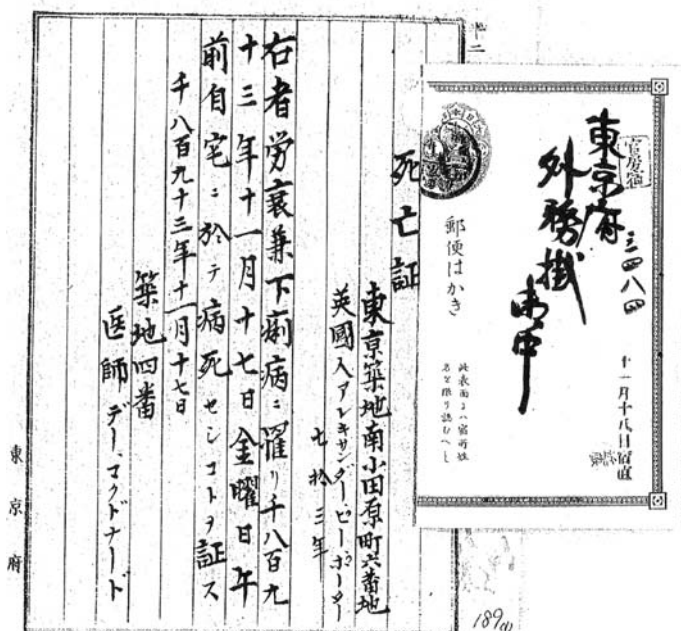 東京府
外務掛
御中
三四八四
十一月十八日宿直
郵便はかき
此表面ニハ宿所姓
名を限り認むへし
死亡証
東京築地南小田原町六番地
英國人アレキサンダービーポーター
七拾三年
右者労衰兼下痢病ニ罹リ千八百九
十三年十一月十七日金曜日午
前自宅ニ於テ病死セシコトヲ証ス
千八百九十三年十一月十七日
築地四番
医師デー、マクドナード
東京府